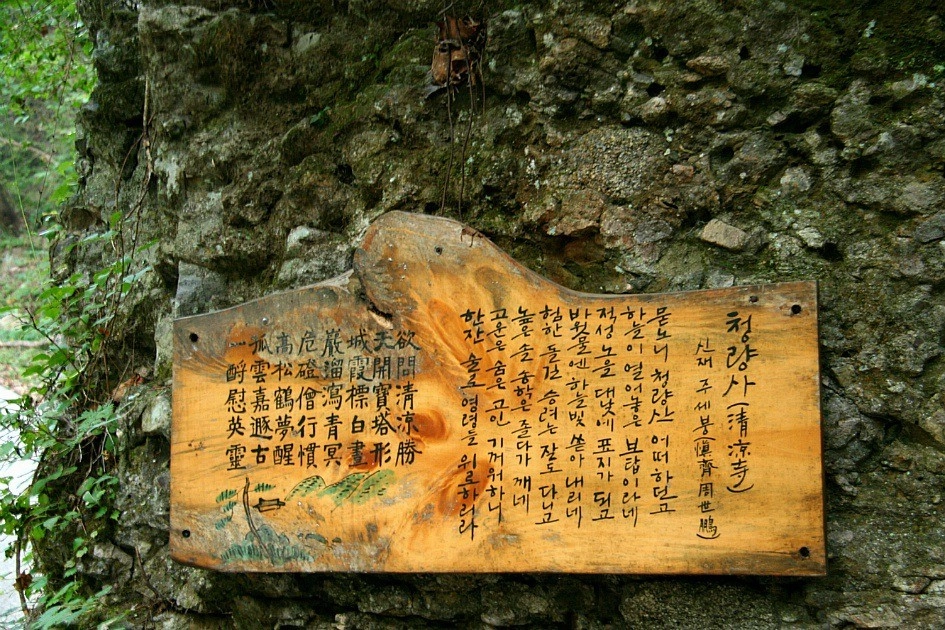 청량사 (清凉寺)
신재 주세붕 (愼齋 周世鵬)
묻노니 청량산 어떠하던고
하늘이 열어놓은 보탑이라네
적성 노을 대낮에 표지가 되고
바윗물엔 하늘빛 쏟아 내리네
험한 돌길 승려는 잘도 다니고
높은 솔 송학은 졸다가 깨네
고운은 숨은 고인 기꺼워하니
한잔 술로 영령을 위로하리라
欲問清凉勝
天開寶塔形
城霞標白晝
巖溜瀉青冥
危磴僧行慣
高松鶴夢醒
孤雲嘉遯古
一酹慰英靈